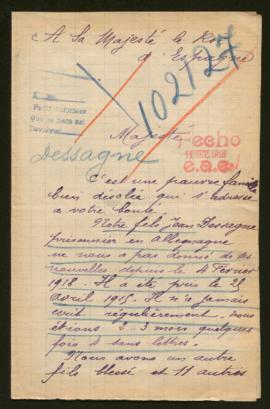 A Sa Majesté le Roi
d'Espagne
102127
Majesté
Fecho
Dessagne
C'est une pauvre famille
bien désolée qui s'adresse
a votre bonté.
Notre fils Jean Dessagne
prisonnier en allemagne
ne nous a pas donné de ses
nouvelles depuis le 4 Février
1918. Il a été pris le 25
avril 1915. Il n'a jamais
écrit régulièrement. nous
étions 2, 3 mois quelques
fois 4 sans lettres.
Nous avons un autre
fils blessé et 11 autres